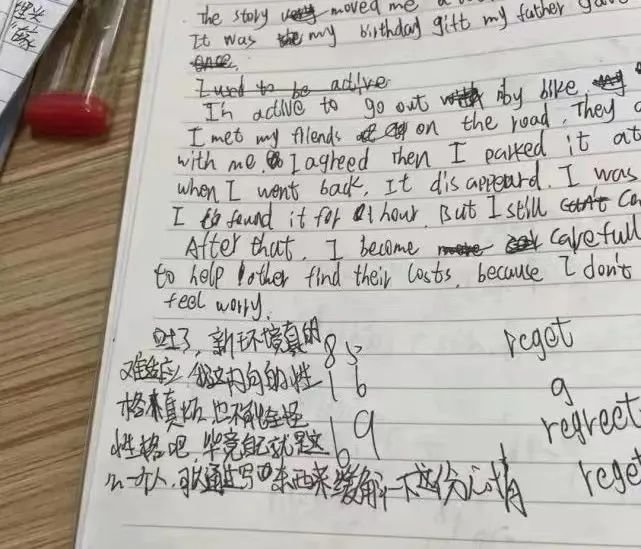 The story moved me a
It was my birthday gift my father gave
once.
I used to be active
I'm active to go out by bike.
I met my friends on the road. They
with me. I agreed then I parked it at
when I went back, It disappeard. I was
I found it for 1 hour. But I still can't
After that, I become more carefull
to help other find their losts, because I don't
feel worry.
吐了，新环境真的 85 reget
难适应，我这内向的性 16 g
格来真坏，也不能全怪 69 regreet
性格吧，毕竟自己就是这 reget
么一个人，可以通过写东西来缓解一下这份心情